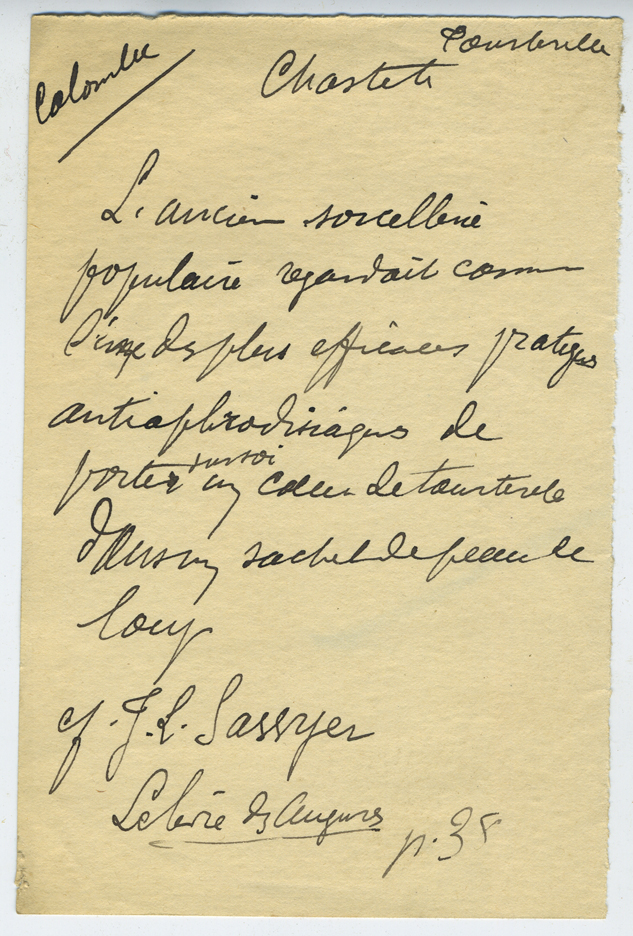 Tourterelle
Colombe
Chasteté
L'ancienne sorcellerie
populaire regardait comme
l'une des plus efficaces pratiques
antiaphrodisiaques de
porter sur soi un cœur de tourterelle
dans un sachet de peau de
loup
cf. J. L.
Le livre des Augures
p. 38